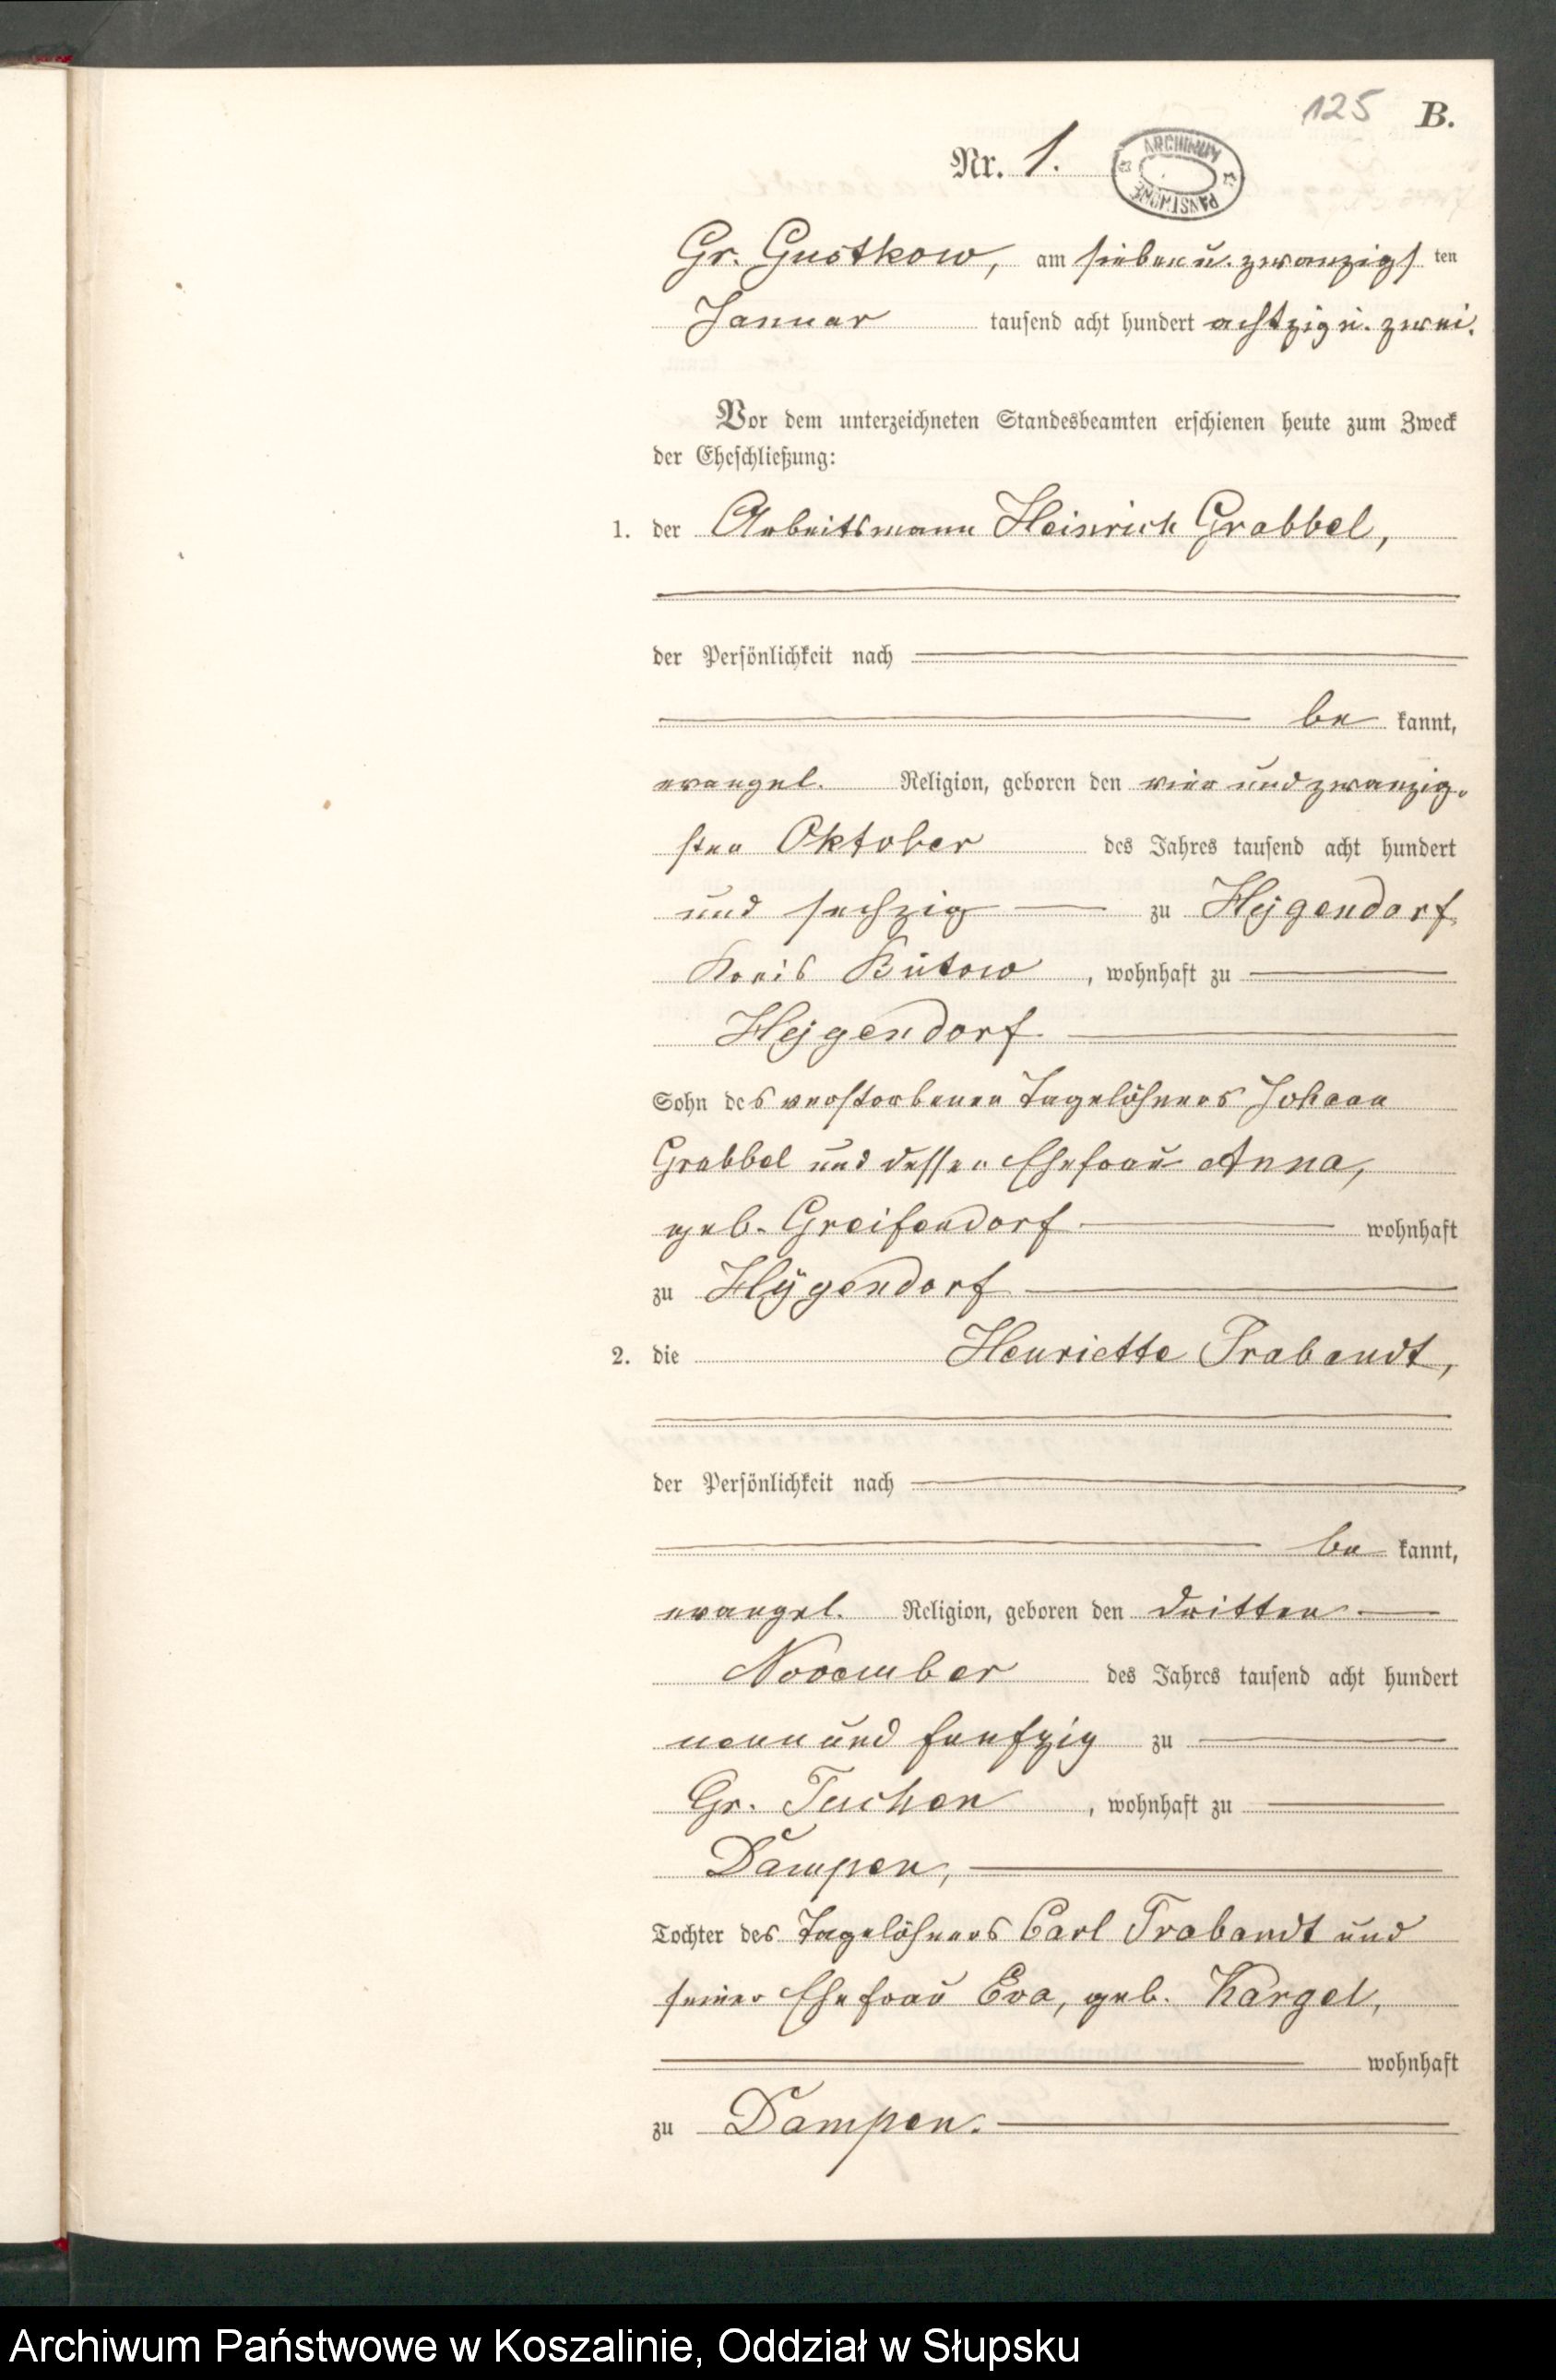 125 B.
Nr. 1.
ARCHIWUM PAŃSTWOWE
Gr. Gustkow, am sieben u. zwanzigs ten
Januar tausend acht hundert achtzig u. zwei.
Vor dem unterzeichneten Standesbeamten erschienen heute zum Zweck
der Eheschließung:
1. der Arbeitsmann Heinrich Grabbel,
der Persönlichkeit nach
be kannt,
evangel. Religion, geboren den vier und zwanzig-
sten Oktober des Jahres tausend acht hundert
und sechzig zu Hygendorf
Kreis Bütow, wohnhaft zu
Hygendorf
Sohn des verstorbenen Tagelöhners Johann
Grabbel und dessen Ehefrau Anna,
geb. Greifendorf wohnhaft
zu Hÿgendorf
2. die Henriette Trabandt,
der Persönlichkeit nach
be kannt,
evangel. Religion, geboren den dritten
November des Jahres tausend acht hundert
neun und funfzig zu
Gr. Tuchen, wohnhaft zu
Dampen,
Tochter des Tagelöhners Carl Trabandt und
seiner Ehefrau Eva, geb. Kargel,
wohnhaft
zu Dampen.
Archiwum Państwowe w Koszalinie, Oddział w Słupsku